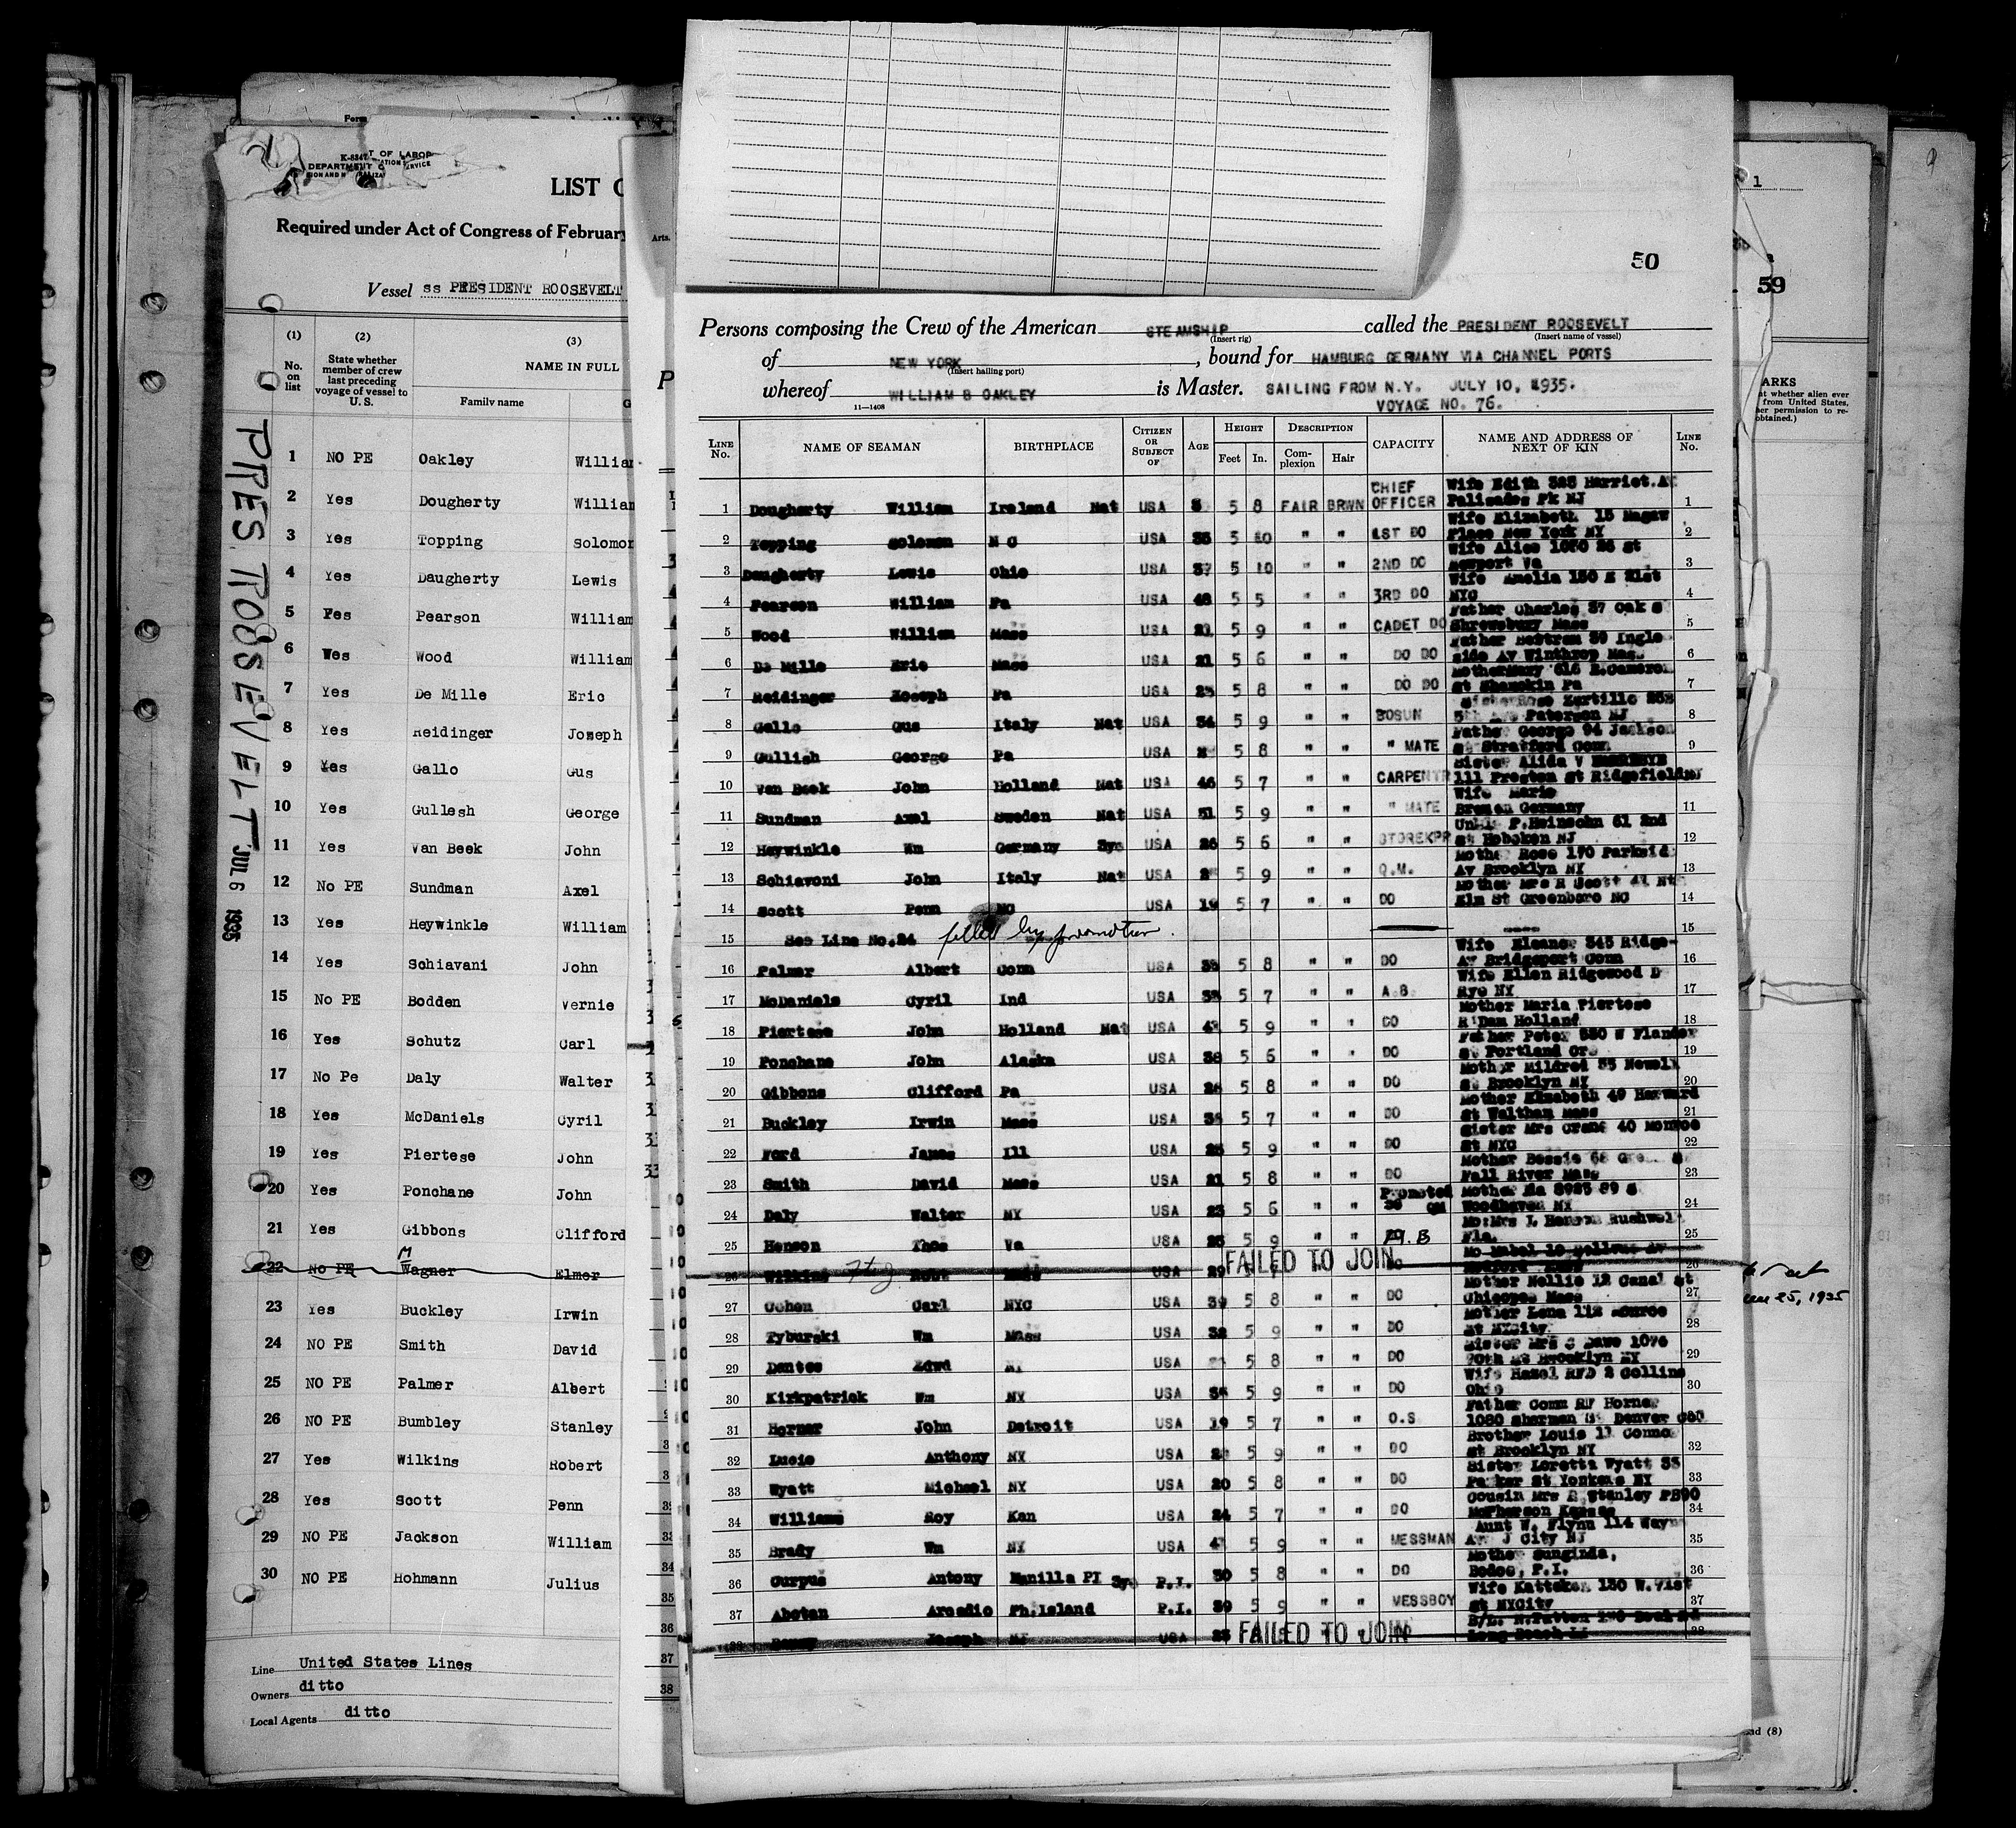 K-8347
T OF LABOR
DEPARTMENT
LIST
Required under Act of Congress of February
Vessel SS PRESIDENT ROOSEVELT
(1) (2) (3)
No. on list
State whether member of crew last preceding voyage of vessel to U. S.
NAME IN FULL
Family name
1 NO PE Oakley Willia
2 Yes Dougherty Willia
3 Yes Topping Solomo
4 Yes Daugherty Lewis
5 Yes Pearson William
6 Yes Wood William
7 Yes De Mille Eric
8 Yes Reidinger Joseph
9 Yes Gallo Gus
10 Yes Gullesh George
11 Yes Van Beek John
12 No PE Sundman Axel
13 Yes Heywinkle William
14 Yes Schiavani John
15 No PE Bodden Vernie
16 Yes Schutz Carl
17 No Pe Daly Walter
18 Yes McDaniels Cyril
19 Yes Piertese John
20 Yes Ponchane John
21 Yes Gibbons Clifford
22 No PE Wagner Elmer
23 Yes Buckley Irwin
24 NO PE Smith David
25 NO PE Palmer Albert
26 NO PE Bumbley Stanley
27 Yes Wilkins Robert
28 Yes Scott Penn
29 NO PE Jackson William
30 NO PE Hohmann Julius
Line United States Lines
Owners ditto
Local Agents ditto
PRES ROOSEVELT JUL 6 1935
50
Persons composing the Crew of the American STEAMSHIP called the PRESIDENT ROOSEVELT
(Insert rig) (Insert name of vessel)
of NEW YORK, bound for HAMBURG GERMANY VIA CHANNEL PORTS
(Insert hailing port)
whereof WILLIAM B OAKLEY is Master. SAILING FROM N.Y. JULY 10, 1935.
11—1408 VOYAGE NO. 76.
LINE No. NAME OF SEAMAN BIRTHPLACE CITIZEN OR SUBJECT OF AGE HEIGHT Feet In. DESCRIPTION Complexion Hair CAPACITY NAME AND ADDRESS OF NEXT OF KIN LINE No.
1 Dougherty William Ireland Nat USA 5 8 FAIR BRWN CHIEF OFFICER Wife Edith 323 Harriet Av Palisades Pk NJ 1
2 Topping Solomon N C USA 35 5 10 " " 1ST DO Wife Elizabeth 15 Magaw Place New York NY 2
3 Daugherty Lewis Ohio USA 37 5 10 " " 2ND DO Wife Alice 1030 26 st Newport Va 3
4 Pearson William Pa USA 48 5 5 " " 3RD DO Wife Amelia 150 E 21st NYC 4
5 Wood William Mass USA 21 5 9 " " CADET DO Father Charles 37 Oak S Shrewsbury Mass 5
6 De Mille Eric Mass USA 21 5 6 " " DO DO Father Bertram 39 Ingle side Av Winthrop Mas 6
7 Reidinger Joseph Pa USA 25 5 8 " " DO DO Mother Mary 616 E.Cameron St Shamokin Pa 7
8 Gallo Gus Italy Nat USA 34 5 9 " " BOSUN Sister Rose Zurtillo Paterson NJ 8
9 Gullish George Pa USA 5 8 " " " MATE Father George 94 Jackson St Stratford Conn 9
10 Van Beek John Holland Nat USA 46 5 7 " " CARPENTR Sister Alida V 111 Preston St Ridgefield NJ
11 Sundman Axel Sweden Nat USA 51 5 9 " " " MATE Wife Marie Bremen Germany 11
12 Heywinkle Wm Germany USA 26 5 6 " " STOREKPR Uncle F.Heinsohn 61 2nd St Hoboken NJ 12
13 Schiavoni John Italy Nat USA 5 9 " " Q.M. Mother Rose 170 Parksid Av Brooklyn NY 13
14 Scott Penn NC USA 19 5 7 " " DO Mother Mrs R Scott Elm St Greenboro NC 14
15 See Line No.24 filled by promotion. 15
16 Palmer Albert Conn USA 5 8 " " DO Wife Eleanor 345 Ridge- Av Bridgeport Conn 16
17 McDaniels Cyril Ind USA 33 5 7 " " A.B. Wife Ellen Ridgewood D Rye NY 17
18 Piertese John Holland Nat USA 5 9 " " DO Mother Maria Piertese R'Dam Holland 18
19 Ponchane John Alaska USA 38 5 6 " " DO Father Peter 530 W Flander St Portland Ore 19
20 Gibbons Clifford Pa USA 26 5 8 " " DO Mother Mildred 35 Newell St Brooklyn NY 20
21 Buckley Irwin Mass USA 5 7 " " DO Mother Elizabeth 49 Harvard St Waltham Mass 21
22 Ford James Ill USA 25 5 9 " " DO Sister Mrs Crane 40 Monroe St NYC 22
23 Smith David Mass USA 21 5 8 " " DO Mother Bessie 68 Fall River Mass 23
24 Daly Walter NY USA 23 5 6 " " Promoted QM Mother Ma 8925 89 S Woodhaven NY 24
25 Henson Thos Va USA 5 9 " " A.B Mo:Mrs L Henson Bushwel Fla. 25
26 Wilkins USA 29 FAILED TO JOIN 26
27 Cohen Carl NYC USA 39 5 8 " " DO Mother Nellie 12 Canal st Chicopee Mass 27
28 Tyburski Wm Mass USA 32 5 9 " " DO Mother Lena 112 Monroe St NYCity 28
29 Dantes Edwd USA 5 8 " " DO Sister Mrs 1076 70th St Brooklyn NY 29
30 Kirkpatrick Wm NY USA 5 9 " " DO Wife Hazel RFD 2 Collins Ohio 30
31 Horner John Detroit USA 19 5 7 " " O.S Father Comm RF Horner 1080 Sherman St Denver Col
32 Lucie Anthony NY USA 5 9 " " DO Brother Louis 11 Conno St Brooklyn NY 32
33 Wyatt Michael NY USA 20 5 8 " " DO Sister Loretta Wyatt 35 Parker St Yonkers NY 33
34 Williams Roy Kan USA 24 5 7 " " DO Cousin Mrs R Stanley McPherson Kansas 34
35 Brady Wm NY USA 5 9 " " MESSMAN Aunt W. Flynn 114 Wayn Av J City NJ 35
36 Curpus Antony Manilla PI P.I. 30 5 8 " " DO Mother Sunginda, Bodoe, P.I. 36
37 Abotan Arcadio Ph.Island P.I. 39 5 9 " " MESSBOY Wife Katteken 130 W.71st St NYCity 37
38 Joseph NJ USA FAILED TO JOIN Long Beach 38
1
59
ARKS
at whether alien ever
from United States,
her permission to re-
obtained.)
25, 1935